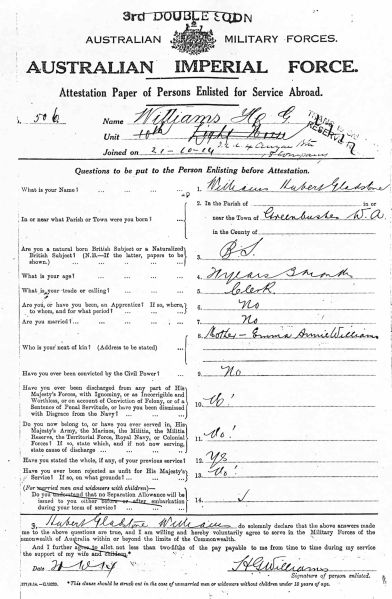 3rd DOUBLE SQDN
AUSTRALIAN MILITARY FORCES.
AUSTRALIAN IMPERIAL FORCE.
Attestation Paper of Persons Enlisted for Service Abroad.
506 Name Williams H. G.
Unit 10th Light Horse
Joined on 21-10-14
Questions to be put to the Person Enlisting before Attestation.
What is your Name? 1. Williams Hubert Gladstone
In or near what Parish or Town were you born? 2. In the Parish of in or
near the Town of Greenbushes W.A
in the County of
Are you a natural born British Subject or a Naturalized
British Subject? (N.B.—If the latter, papers to be
shown.) 3. B.S.
What is your age? 4. years months
What is your trade or calling? 5. Clerk
Are you, or have you been, an Apprentice? If so, where,
to whom, and for what period? 6. No
Are you married? 7. No
Who is your next of kin? (Address to be stated) 8. Mother - Emma Annie Williams
Have you ever been convicted by the Civil Power? 9. No
Have you ever been discharged from any part of His
Majesty's Forces, with Ignominy, or as Incorrigible and
Worthless, or on account of Conviction of Felony, or of a
Sentence of Penal Servitude, or have you been dismissed
with Disgrace from the Navy? 10. No!
Do you now belong to, or have you ever served in, His
Majesty's Army, the Marines, the Militia, the Militia
Reserve, the Territorial Force, Royal Navy, or Colonial
Forces? If so, state which, and if not now serving,
state cause of discharge 11. No!
Have you stated the whole, if any, of your previous service? 12. Yes
Have you ever been rejected as unfit for His Majesty's
Service? If so, on what grounds? 13. No!
(For married men and widowers with children)—
Do you understand that no Separation Allowance will be
issued to you either before or after embarkation
during your term of service? 14.
3, Hubert Gladstone Williams do solemnly declare that the above answers made
me to the above questions are true, and I am willing and hereby voluntarily agree to serve in the Military Forces of the
ommonwealth of Australia within or beyond the limits of the Commonwealth.
And I further agree to allot not less than two-fifths of the pay payable to me from time to time during my service
the support of my wife and children.*
Date H G Williams
Signature of person enlisted.
* This clause should be struck out in the case of unmarried men or widowers without children under 18 years of age.